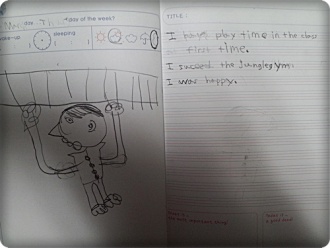 day of the week?
wake-up
sleeping
TITLE :
I have play time in the class
first time.
I succeed the junglegym.
I was happy.